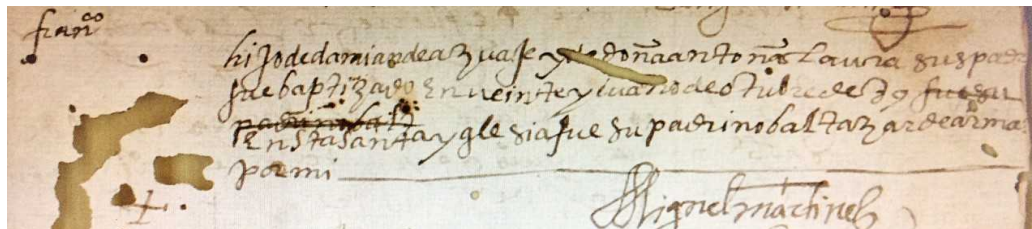 fran^co
hijo de damian de azuaje y de doña antonia Laura sus padr
fue baptizado En veinte y cuatro de octubre de fue su
padrino balt
En sta santa yglesia fue su padrino baltazar de armas
por mi
Miguel martinez